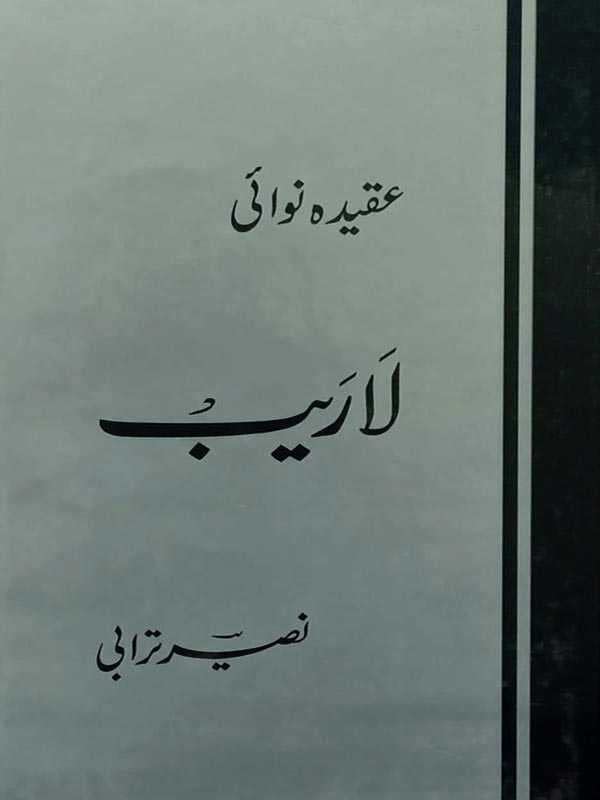 عقیدہ نوائی
لَارَیب
نصیر ترابی